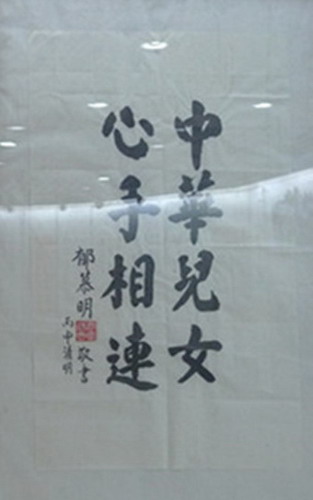 中華兒女
心手相連
郁慕明
敬書
丙申清明